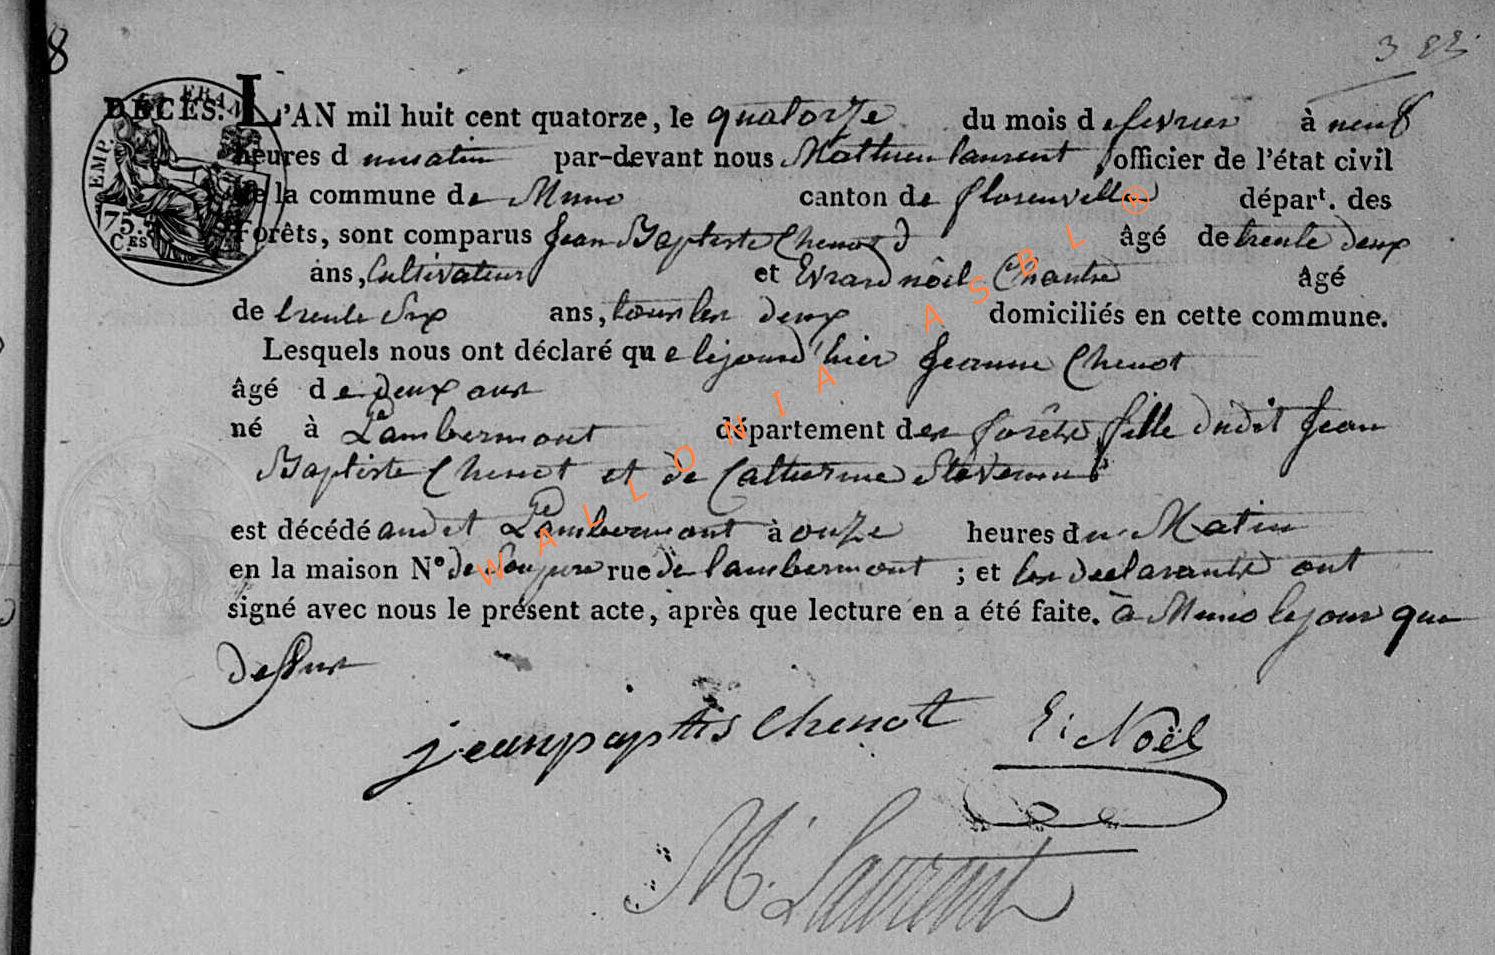 8
3
DÉCÈS. L'AN mil huit cent quatorze, le quatorze du mois de fevrier à neuf
heures d umatin par-devant nous Mathieu laurent officier de l'état civil
de la commune de Muno canton de florenville départ. des
Forêts, sont comparus Jean Baptiste Chenot âgé de trente deux
ans, Cultivateur et Evrard nôel Chantre âgé
de trente Six ans, tous les deux domiciliés en cette commune.
Lesquels nous ont déclaré que lejourd'hier Jeanne Chenot
âgé de deux ans
né à Lambermont département des forêts fille dudit Jean
Baptiste Chenot et de Catherine
est décédé audit Lambermont à onze heures du Matin
en la maison N° de rue de lambermont ; et les declarants ont
signé avec nous le présent acte, après que lecture en a été faite. à Muno lejour que
dessus
jeanpaptis Chenot E: Noël
M. Laurent
EMP. FRAN
75.
C.ES
WALLONIA ASBL ®